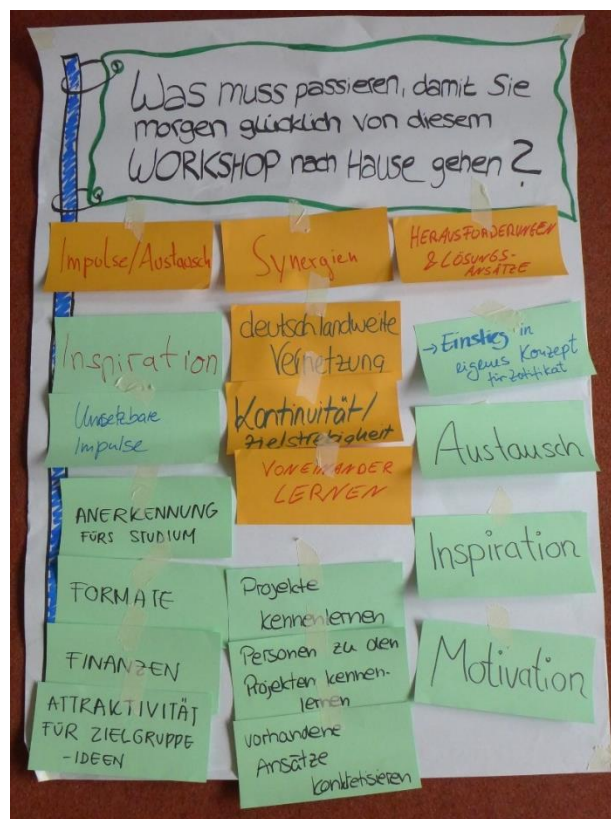 Was muss passieren, damit Sie
morgen glücklich von diesem
WORKSHOP nach Hause gehen?
Impulse/Austausch
Inspiration
Umsetzbare
Impulse
ANERKENNUNG
FÜRS STUDIUM
FORMATE
FINANZEN
ATTRAKTIVITÄT
FÜR ZIELGRUPPE
-IDEEN
Synergien
deutschlandweite
Vernetzung
Kontinuität/
Zielstrebigkeit
VONEINANDER
LERNEN
Projekte
kennenlernen
Personen zu den
Projekten kennen-
lernen
vorhandene
Ansätze
konkretisieren
HERAUSFORDERUNGEN
& LÖSUNGS-
ANSÄTZE
→ Einstieg in
eigenes Konzept
für Zertifikat
Austausch
Inspiration
Motivation